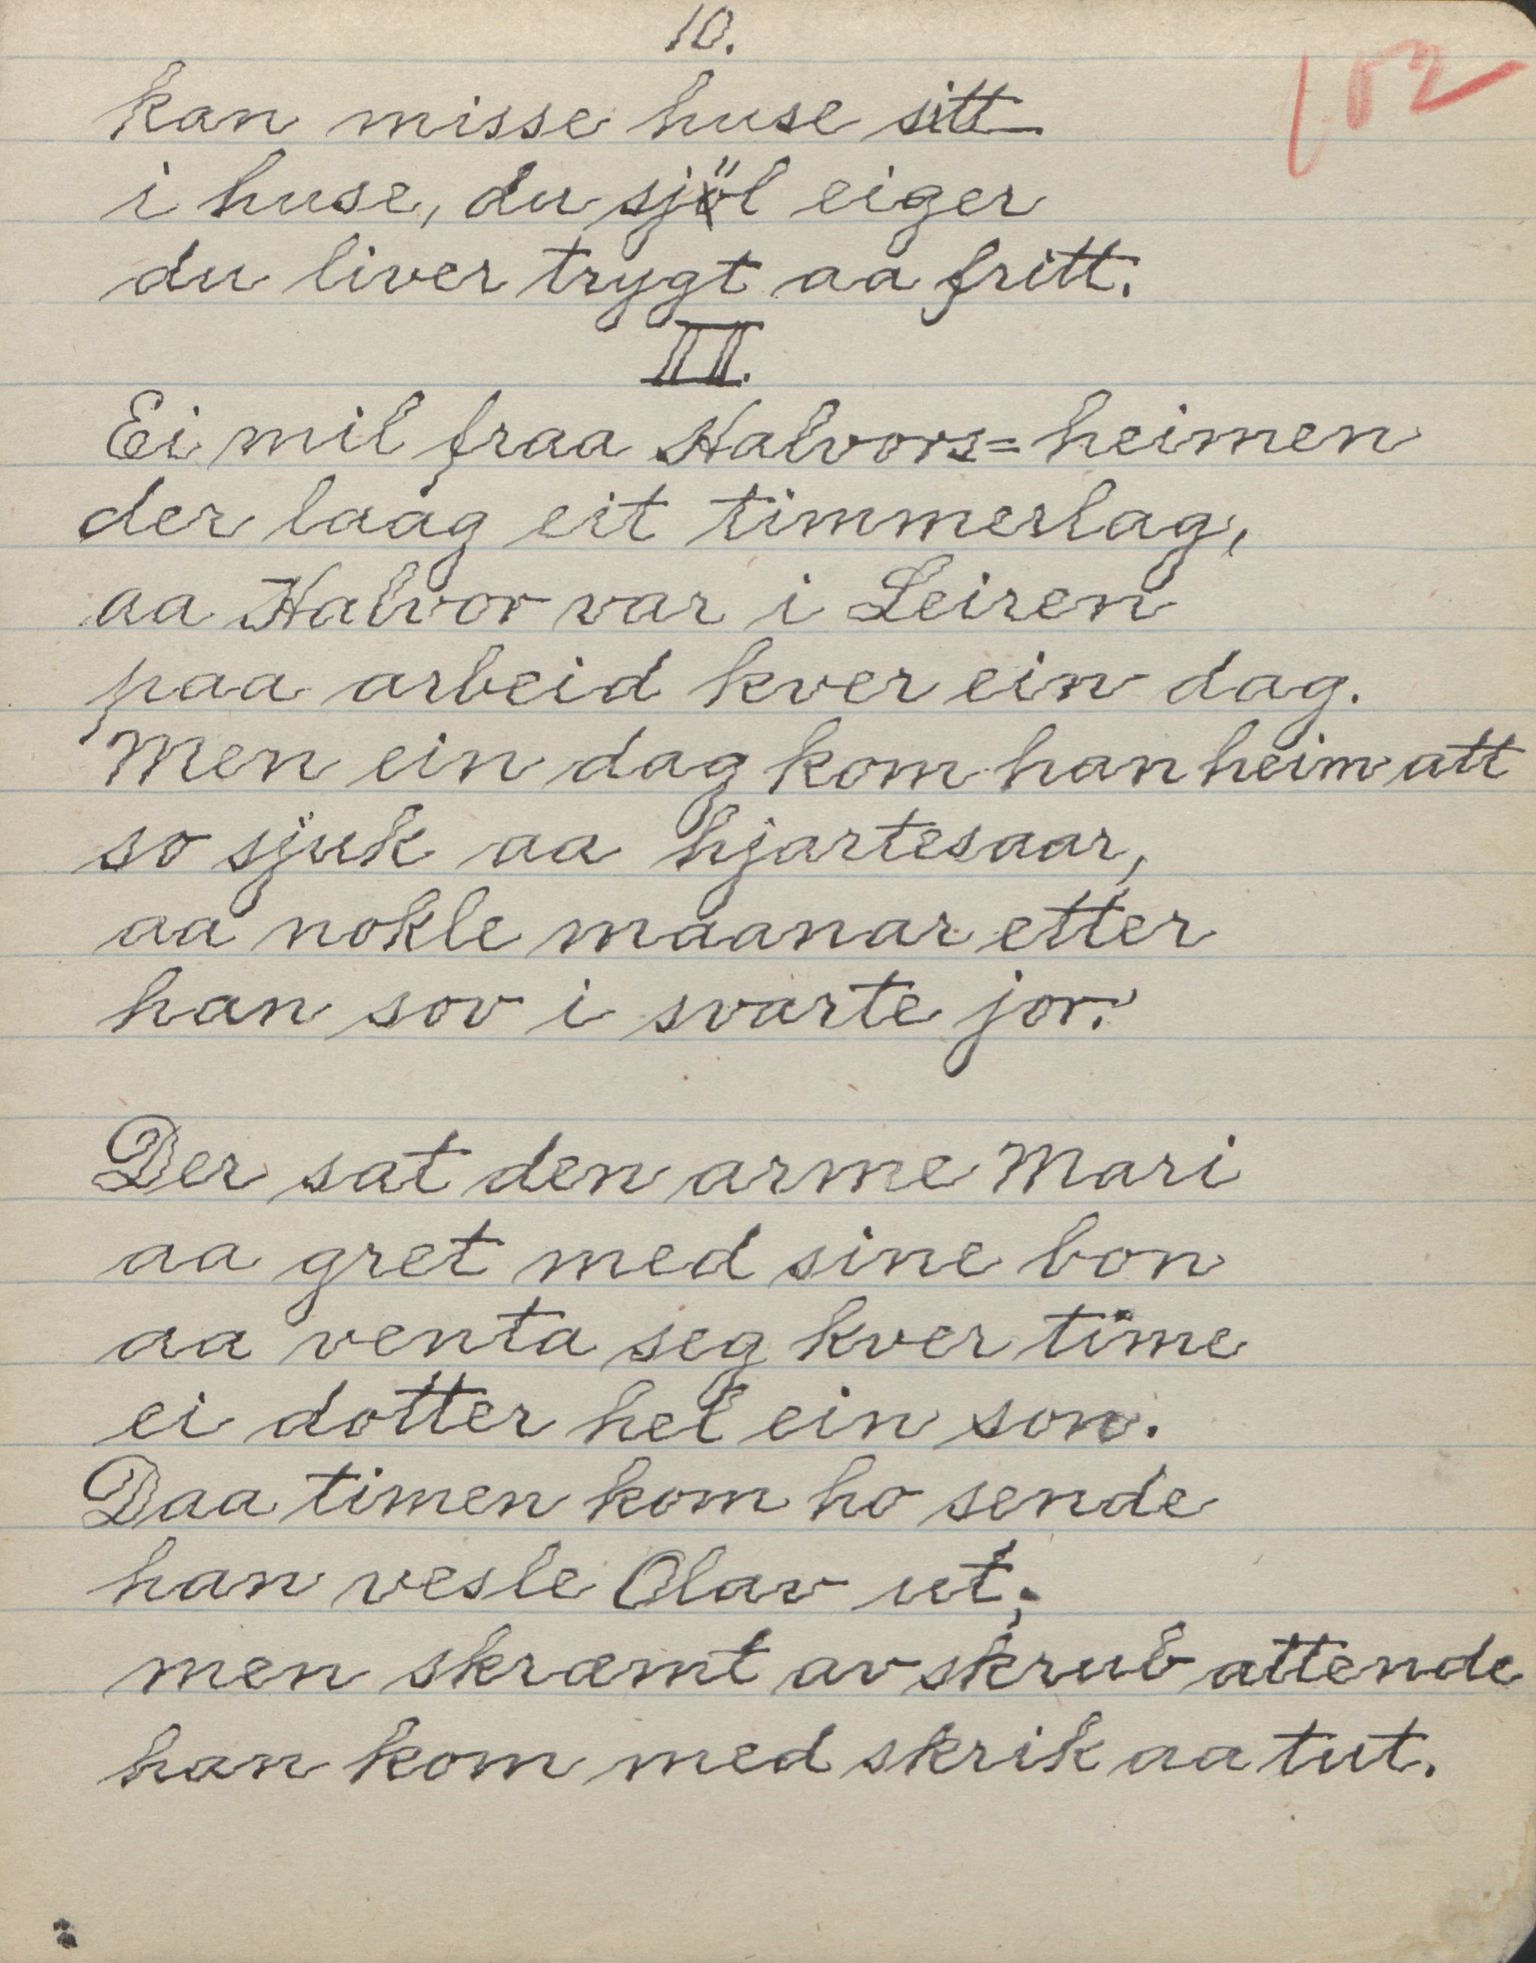 10.
102
kan misse huse sitt
i huse, du sjöl eiger
du liver trygt aa fritt.
II.
Ei mil fraa Halvors=heimen
der laag eit timmerlag,
aa Halvor var i Leiren
paa arbeid kver ein dag.
Men ein dag kom han heim att
so sjuk aa hjartesaar,
aa nokle maanar etter
han sov i svarte jor.
Der sat den arme Mari
aa gret med sine bon
aa venta seg kver time
ei dotter hel ein son.
Daa timen kom ho sende
han vesle Olav ut;
men skræmt av skrub attende
han kom med skrik aa tut.